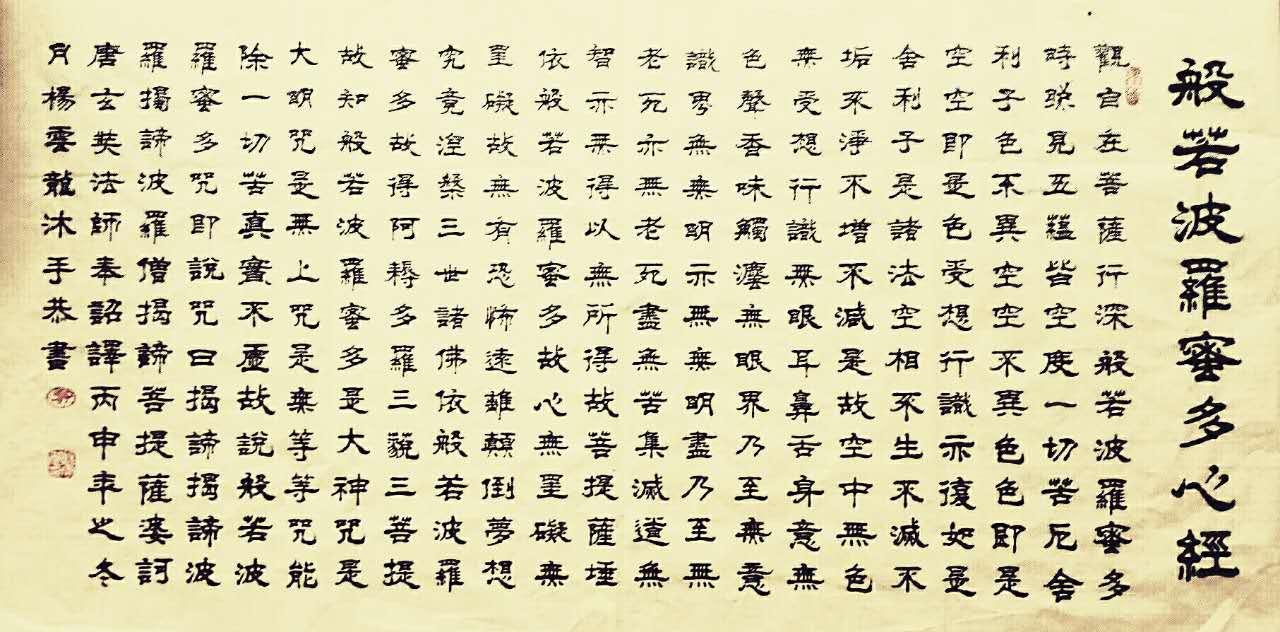 般若波羅蜜多心經
觀自在菩薩行深般若波羅蜜多
時照見五蘊皆空度一切苦厄舍
利子色不異空空不異色色即是
空空即是色受想行識亦復如是
舍利子是諸法空相不生不滅不
垢不淨不增不減是故空中無色
無受想行識無眼耳鼻舌身意無
色聲香味觸灋無眼界乃至無意
識界無無明亦無無明盡乃至無
老死亦無老死盡無苦集滅道無
智亦無得以無所得故菩提薩埵
依般若波羅蜜多故心無罣礙無
罣礙故無有恐怖遠離顛倒夢想
究竟涅槃三世諸佛依般若波羅
蜜多故得阿耨多羅三藐三菩提
故知般若波羅蜜多是大神咒是
大明咒是無上咒是無等等咒能
除一切苦真實不虛故說般若波
羅蜜多咒即說咒曰揭諦揭諦波
羅揭諦波羅僧揭諦菩提薩婆訶
唐玄奘法師奉詔譯丙申年之冬
月楊雲龍沐手恭書